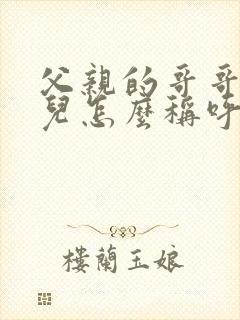 父親的哥哥
兒怎麼稱呼
樓蘭玉娘